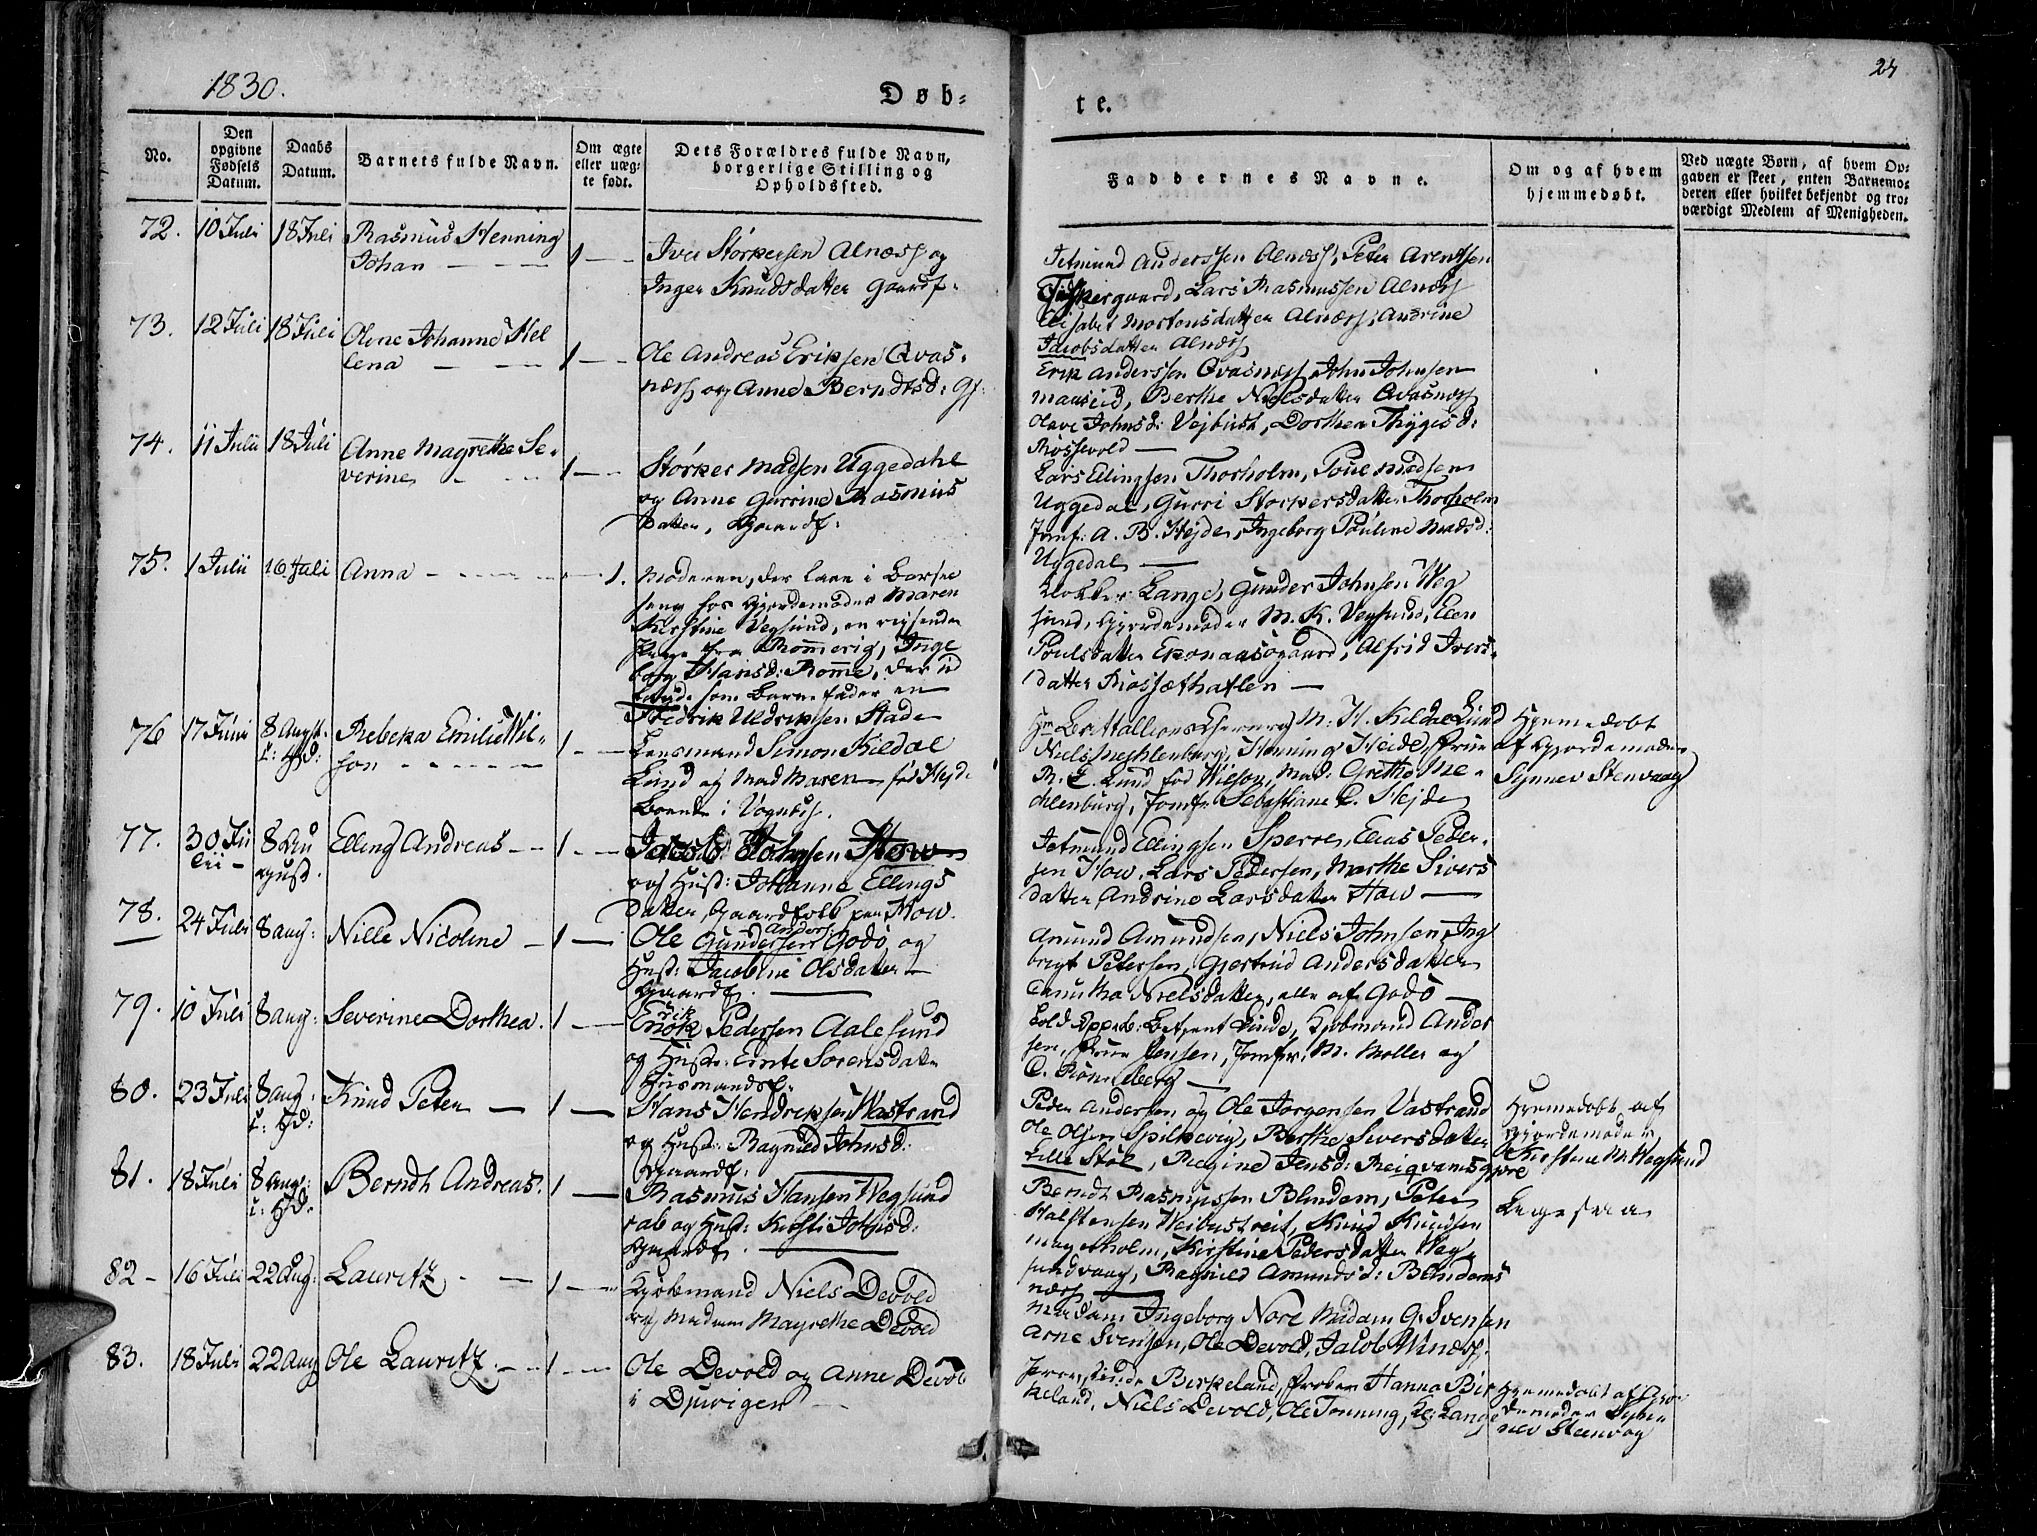 1830.
Døb-
te.
24
No.
Den opgivne Fødsels Datum.
Daabs Datum.
Barnets fulde Navn.
Om ægte eller uæg-te født.
Dets Forældres fulde Navn, borgerlige Stilling og Opholdsfted.
Faddernes Navne.
Om og af hvem hjemmedøbt.
Ved uægte Børn, af hvem Op-
gaven er skeet, enten Barnemo-
deren eller hvilket bekjendt og tro-
værdigt Medlem af Menigheden.
72. 10 Juli 18 Juli Rasmus Henning
Johan — 1 —
Iver Størkersen Alnæss og
Inger Knudsdatter Gaardf.
Jetmund Anderssen Alnæss, Peter Arentsen
Lars Rasmussen Alnæss
Elisabet Mortensdatter Alnæss, Andrine
Jacobsdatter Alnæss
73. 12 Juli 18 Juli Olene Johanne Hel
lena — 1 —
Ole Andreas Eriksen Qvas-
næss og Anne Berndtsd: Gf.
Erik Anderssen Qvasnæss, John Johnsen
Mauseid, Berthe Nielsdatter Qvasnæss
Olave Johnsd: Vejbust, Dorthea Thygesd:
Røssevold —
74. 11 Juli 18 Juli Anne Magrethe Se-
verine — 1 —
Størker Madsen Uggedahl
og Anne Gurrine Rasmus
Datter, Gaardf:
Lars Ellingsen Thorholm, Poul Madsen
Uggedal, Gurri Størkersdatter Thorholm
Jomf: A. B. Hejde, Ingeborg Pouline Madsd:
Uggedal —
75. 1 Julii 16 Juli Anna — 1.
Moderen, der laae i Barsel
seng hos Gjordemoder Maren
Kirstine Vegsund, en rejsende
fra Rommerig, Inge
borg Hansd: Romme, der ud
lagde som Barnefader en
Fredrik Uldriksen Stade
Klokker Lange, Gunder Johnsen Weg
sund, Gjordemoder M. K. Vegsund, Elen
Poulsdatter Ekonaasøgaard, Alfrid Ivers-
datter Røssæthatlen —
76 17 Juni 8 August Rebeka Emilie Wil-
son — 1 —
Lensmand Simon Kildal
Lund og Mad Maren fød Hejde
Boende i Vognbus.
M: H. Kildal Lund
Niels Mechlenburg, Henning Heide, Frue
R. E. Lund fød Wilson, Mad: Grethe Me-
chlenburg, Jomfr Sebastiane C. Hejde
Hjemmedøbt
af Gjordemoder
Synnev Stenvaag
77. 30 Ju
lii — 8 Au
gust. Elling Andreas — 1 —
Jacob Johnsen How
og Hust: Johanne Ellings
datter, Gaardfolk paa How.
Jetmund Ellingsen Sperre, Elias Peder-
sen How, Lars Pedersen, Marthe Sivers
datter, Andrine Larsdatter How —
78. 24 Juli 8 aug: Nille Nicoline — 1 —
Anders:
Ole Gundersen Godø og
Hust: Jacobine Olsdatter —
Gaardf. —
Amund Amundsen, Niels Johnsen, Ing
brigt Petersen, Gjertrud Andersdatter
Nielsdatter, alle af Godø —
79. 10 Juli 8 aug: Severine Dorthea. 1 —
Erik
Enok Pedersen Aalesund
og Hust: Ernte Sørensdatter
Husmandsf.
Told Opperb: Betjent Linde, Kjøbmand Ander
sen, Frue Jensen, Jomfr. M. Møller og
C. Rønneberg —
80. 23 Juli 8 aug: Knud Peter — 1 —
i: Hd:
Hans Hendriksen Wastrand
og Hust: Ragnild Johnsd:
Gaardf: —
Peder Andersen og Ole Jørgensen Vastrand
Ole Olsen Spilkevig, Berthe Siversdatter
Lille Støle, Regine Jensd: Reiqvamsgjære
Hjemmedøbt af
Gjordemoder
Kirstine M. Wegsund
81. 18 Juli 8 Aug: Berndt Andreas. 1 —
i: Hd:
Rasmus Hansen Wegsund
rab og Hust: Kirsti Johnsd:
Gaardf. —
Berndt Rasmussen Blindem, Peter
Halstensen Weibustreit, Knud Knudsen
Magerholm, Kirstine Pedersdatter Weg-
sundvaag, Ragnild Amundsd: Blindems
næss —
82 - 16 Juli 22 Aug: Lauritz — 1 —
Kjøbmand Niels Devold
og Madam Magrethe Devold
Madam Ingeborg Nore, Madam G. Svensen
Arne Svensen, Ole Devold, Jacob Windss.
83. 18 Juli 22 Aug Ole Lauritz — 1 —
Ole Devold og Anne Devold
i Djuvigen —
Birkeland, Froken Hanna Bir
keland, Niels Devold, Ole Tonning, Kl: Lange
Hjemmedøbt af Gjor-
demoder Synn
nev Steenvag